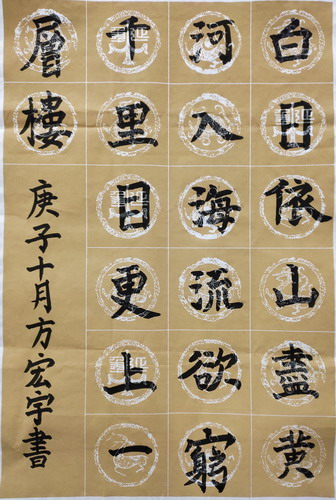 白日依山盡黃
河入海流欲窮
千里目更上一
層樓
庚子十月方宏宇書